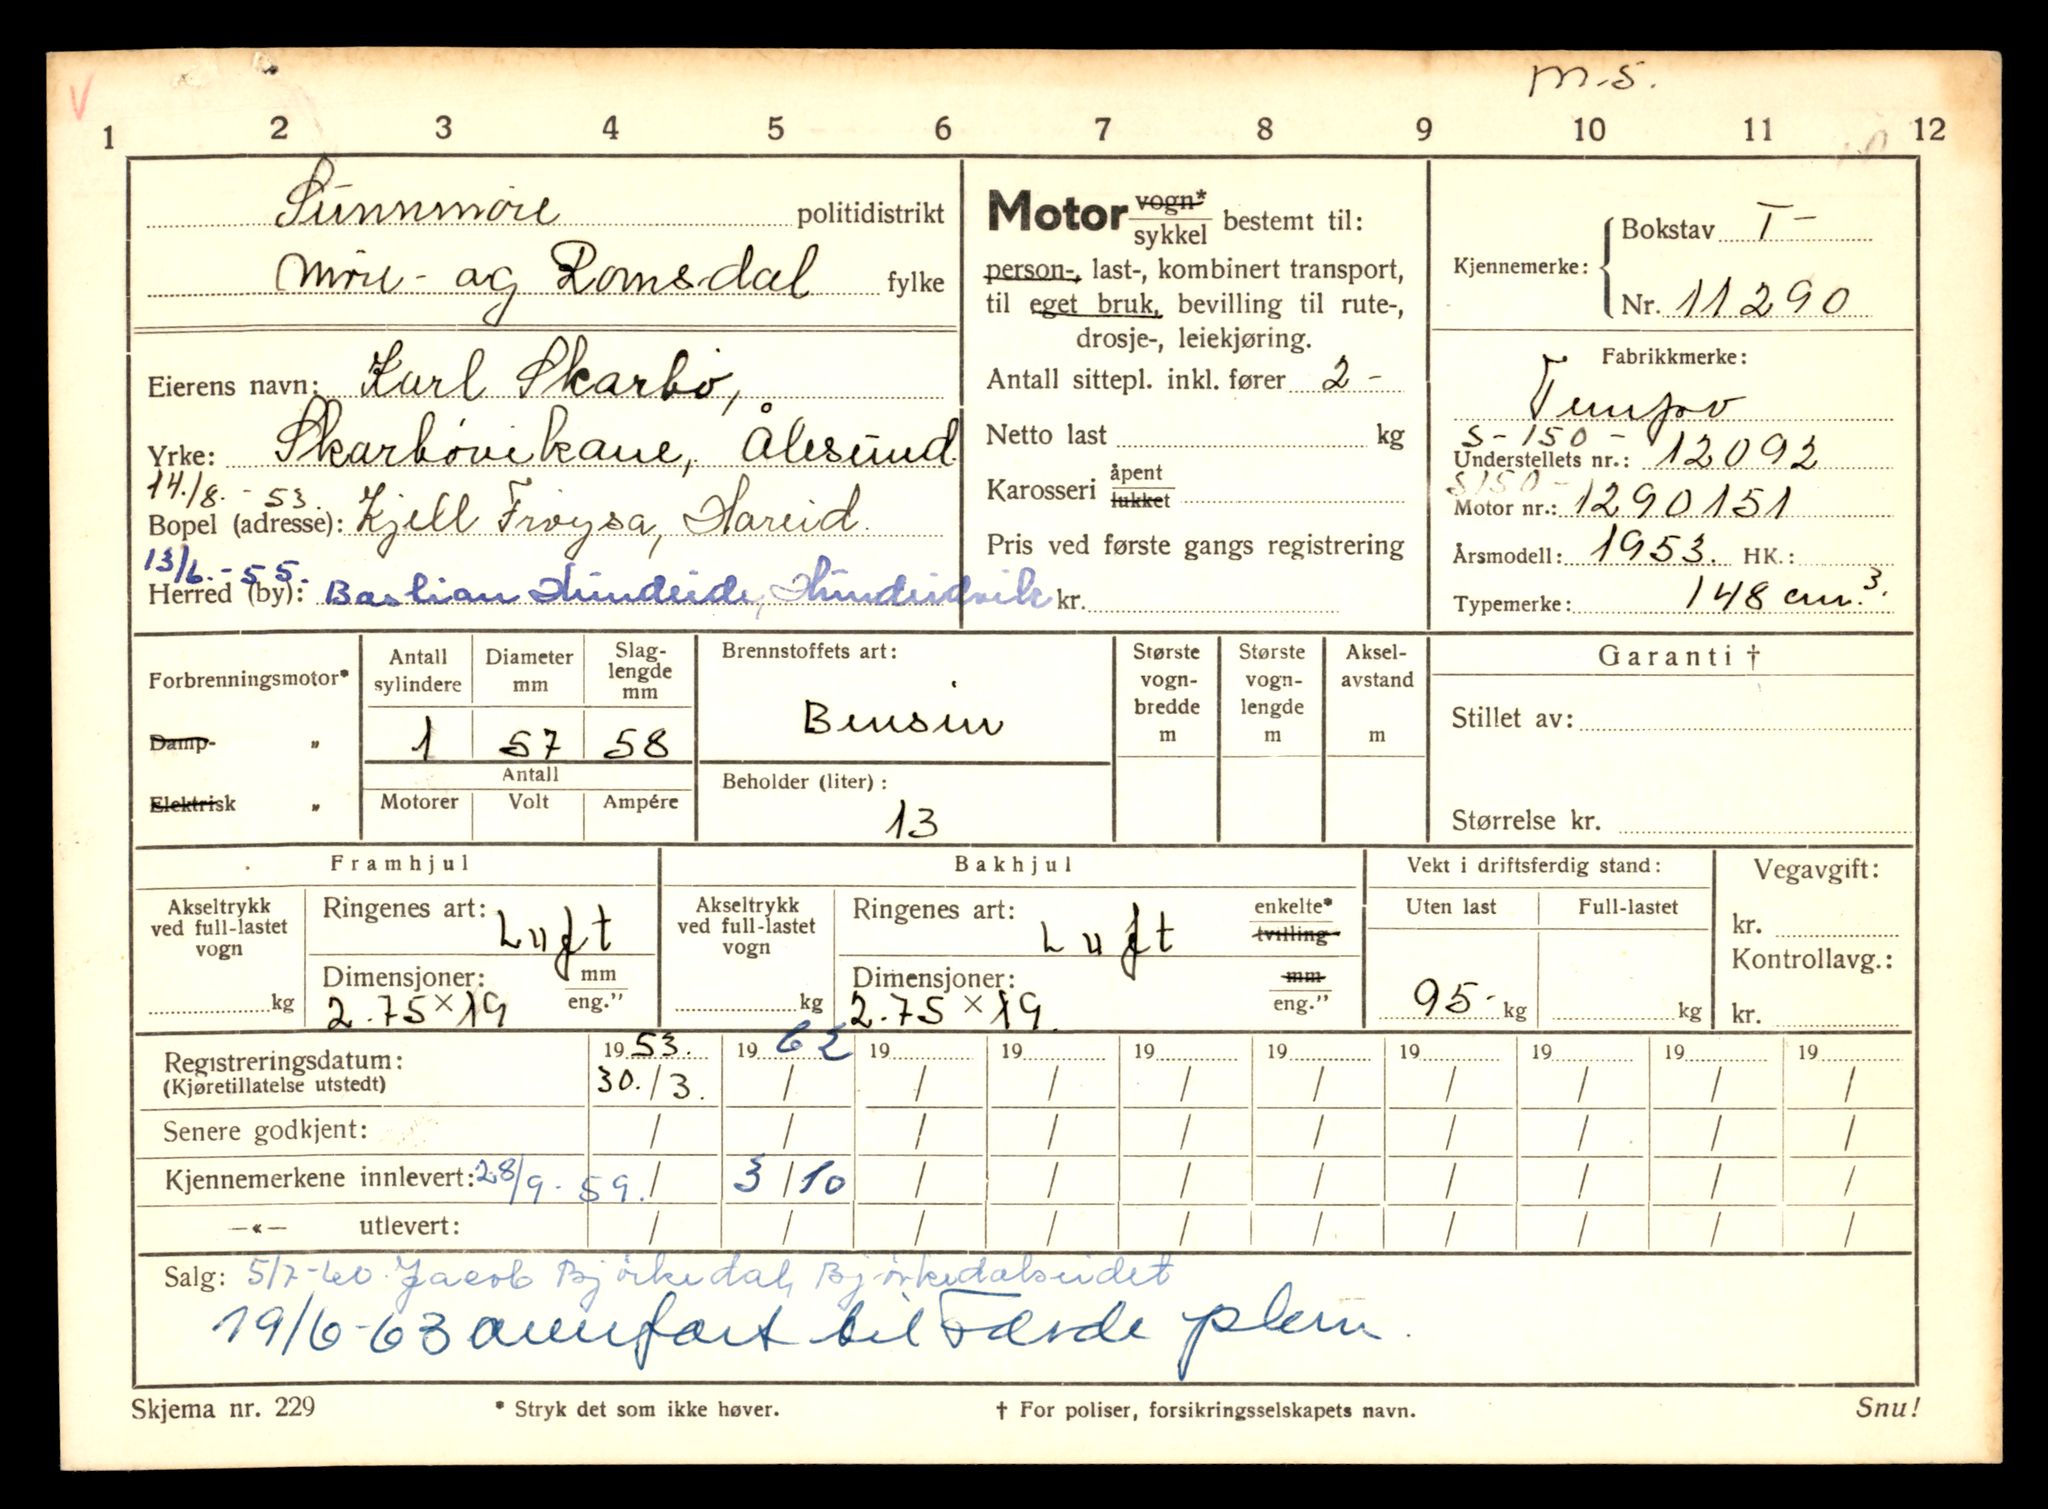 V
m-5.
1 2 3 4 5 6 7 8 9 10 11 12
Sunnmøre politidistrikt
Møre- og Romsdal fylke
Eierens navn: Karl Skarbø,
Yrke: Skarbøvikane, Ålesund
14./8. - 53.
Bopel (adresse): Kjell Frøysa, Hareid.
13/6. - 55.
Herred (by): Bastian Hundeide, Hundeidvik
Motor vogn*
sykkel bestemt til:
person-, last-, kombinert transport,
til eget bruk, bevilling til rute-,
drosje-, leiekjøring.
Antall sittepl. inkl. fører 2 -
Netto last kg
Karosseri åpent
lukket
Pris ved første gangs registrering
kr.
Kjennemerke: Bokstav T -
Nr. 11290
Fabrikkmerke:
Tempo
S - 150 -
Understellets nr.: 12092
S150 -
Motor nr.: 1290151
Årsmodell: 1953. HK.:
Typemerke: 148 cm.3.
Forbrenningsmotor*
Damp- „
Elektrisk „
Antall sylindere
Diameter mm
Slag-lengde mm
1 57 58
Antall
Motorer Volt Ampére
Brennstoffets art:
Bensin
Beholder (liter):
13
Største vogn-bredde m
Største vogn-lengde m
Aksel-avstand m
Garanti †
Stillet av:
Størrelse kr.
Framhjul
Akseltrykk
ved full-lastet
vogn
kg
Ringenes art: Luft
Dimensjoner: mm
2.75 × 19 eng.”
Bakhjul
Akseltrykk
ved full-lastet
vogn
kg
Ringenes art: Luft enkelte*
tvilling
Dimensjoner: mm
2.75 × 19. eng.”
Vekt i driftsferdig stand:
Uten last Full-lastet
95- kg kg
Vegavgift:
kr.
Kontrollavg.:
kr.
Registreringsdatum: 19 53. 19 62 19 19 19 19 19 19 19 19
(Kjøretillatelse utstedt) 30./3. / / / / / / / / /
Senere godkjent: / / / / / / / / / /
Kjennemerkene innlevert: 28/9 - 59. / 3/10 / / / / / / / /
—«— utlevert: / / / / / / / / / /
Salg: 5/7-60. Jacob Bjørkedal, Bjørkedalseidet
19/6-63 til
Skjema nr. 229 * Stryk det som ikke høver. † For poliser, forsikringsselskapets navn. Snu!